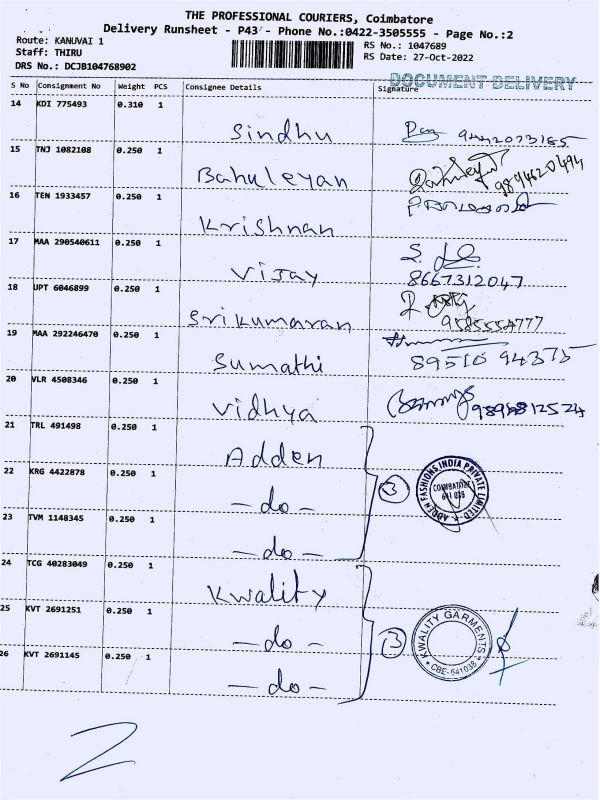 THE PROFESSIONAL COURIERS, Coimbatore
Delivery Runsheet - P43 - Phone No.:0422-3505555 - Page No.:2
Route: KANUVAI 1
Staff: THIRU
DRS No.: DCJB104768902
RS No.: 1047689
RS Date: 27-Oct-2022
DOCUMENT DELIVERY
S No Consignment No Weight PCS Consignee Details Signature
14 KDI 775493 0.310 1
Sindhu
15 TNJ 1082108 0.250 1
Bahuleyan
9894620494
16 TEN 1933457 0.250 1
Krishnan
17 MAA 290540611 0.250 1
Vijay
8667312047
18 UPT 6046899 0.250 1
Srikumaran
19 MAA 292246470 0.250 1
Sumathi
89510 94375
20 VLR 4508346 0.250 1
Vidhya
21 TRL 491498 0.250 1
Adden
22 KRG 4422878 0.250 1
- do -
3
ADDEN FASHIONS INDIA PRIVATE LIMITED
COIMBATORE
641 038
23 TVM 1148345 0.250 1
- do -
24 TCG 40283049 0.250 1
Kwality
25 KVT 2691251 0.250 1
- do -
3
KWALITY GARMENTS
CBE-641038
26 KVT 2691145 0.250 1
- do -
2